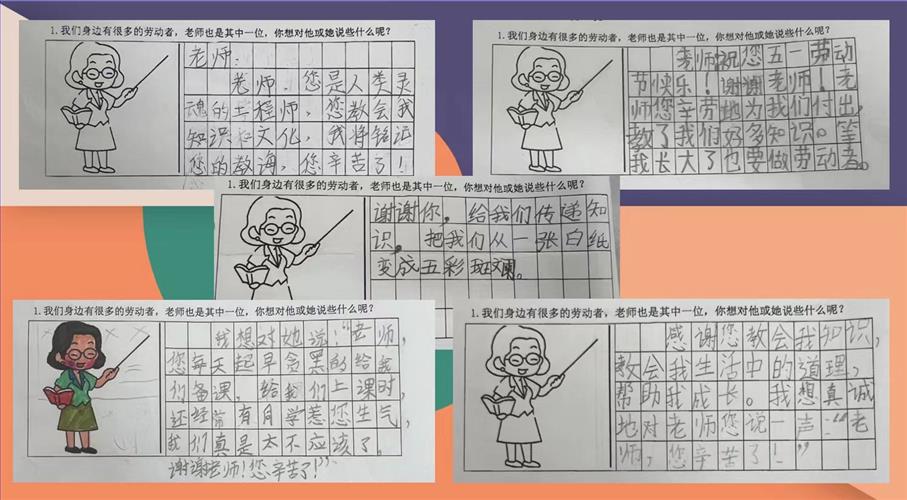 1. 我们身边有很多的劳动者，老师也是其中一位，你想对他或她说些什么呢？
老师：
老师，您是人类灵
魂的工程师，您教会我
知识和文化，我将铭记
您的教诲，您辛苦了！
1. 我们身边有很多的劳动者，老师也是其中一位，你想对他或她说些什么呢？
师祝您五一劳动
节快乐！谢谢老师！老
师您辛劳地为我们付出，
教了我们好多知识。等
我长大了也要做劳动者。
1. 我们身边有很多的劳动者，老师也是其中一位，你想对他或她说些什么呢？
谢谢你，给我们传递知
识。把我们从一张白纸
变成五彩斑斓。
1. 我们身边有很多的劳动者，老师也是其中一位，你想对他或她说些什么呢？
我想对她说：“老师，
您每天起早贪黑的给我
们备课，给我们上课时
还经常有同学惹您生气，
我们真是太不应该了。
谢谢老师！您辛苦了！”
1. 我们身边有很多的劳动者，老师也是其中一位，你想对他或她说些什么呢？
感谢您教会我知识，
教会我生活中的道理，
帮助我成长。我想真诚
地对老师您说一声：“老
师，您辛苦了！”